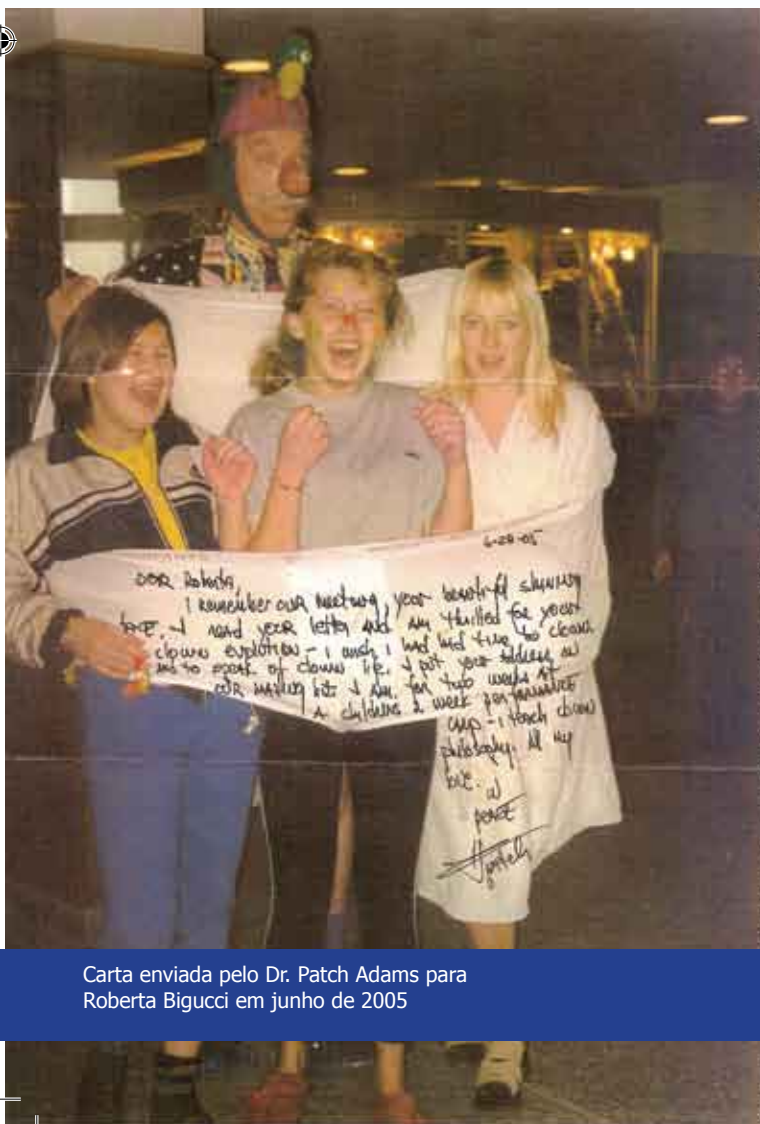 6-28-05
DEAR Roberta,
I remember our meeting, your beautiful shining
face. I read your letter and am thrilled for your
clown evolution - I wish I had had time to clown
and to speak of clown life. I put your address on
our mailing list I am for two weeks at
a childrens 2 week performance
camp - I teach clown
philosophy. All my
love.
in
peace
Patch
Carta enviada pelo Dr. Patch Adams para
Roberta Bigucci em junho de 2005